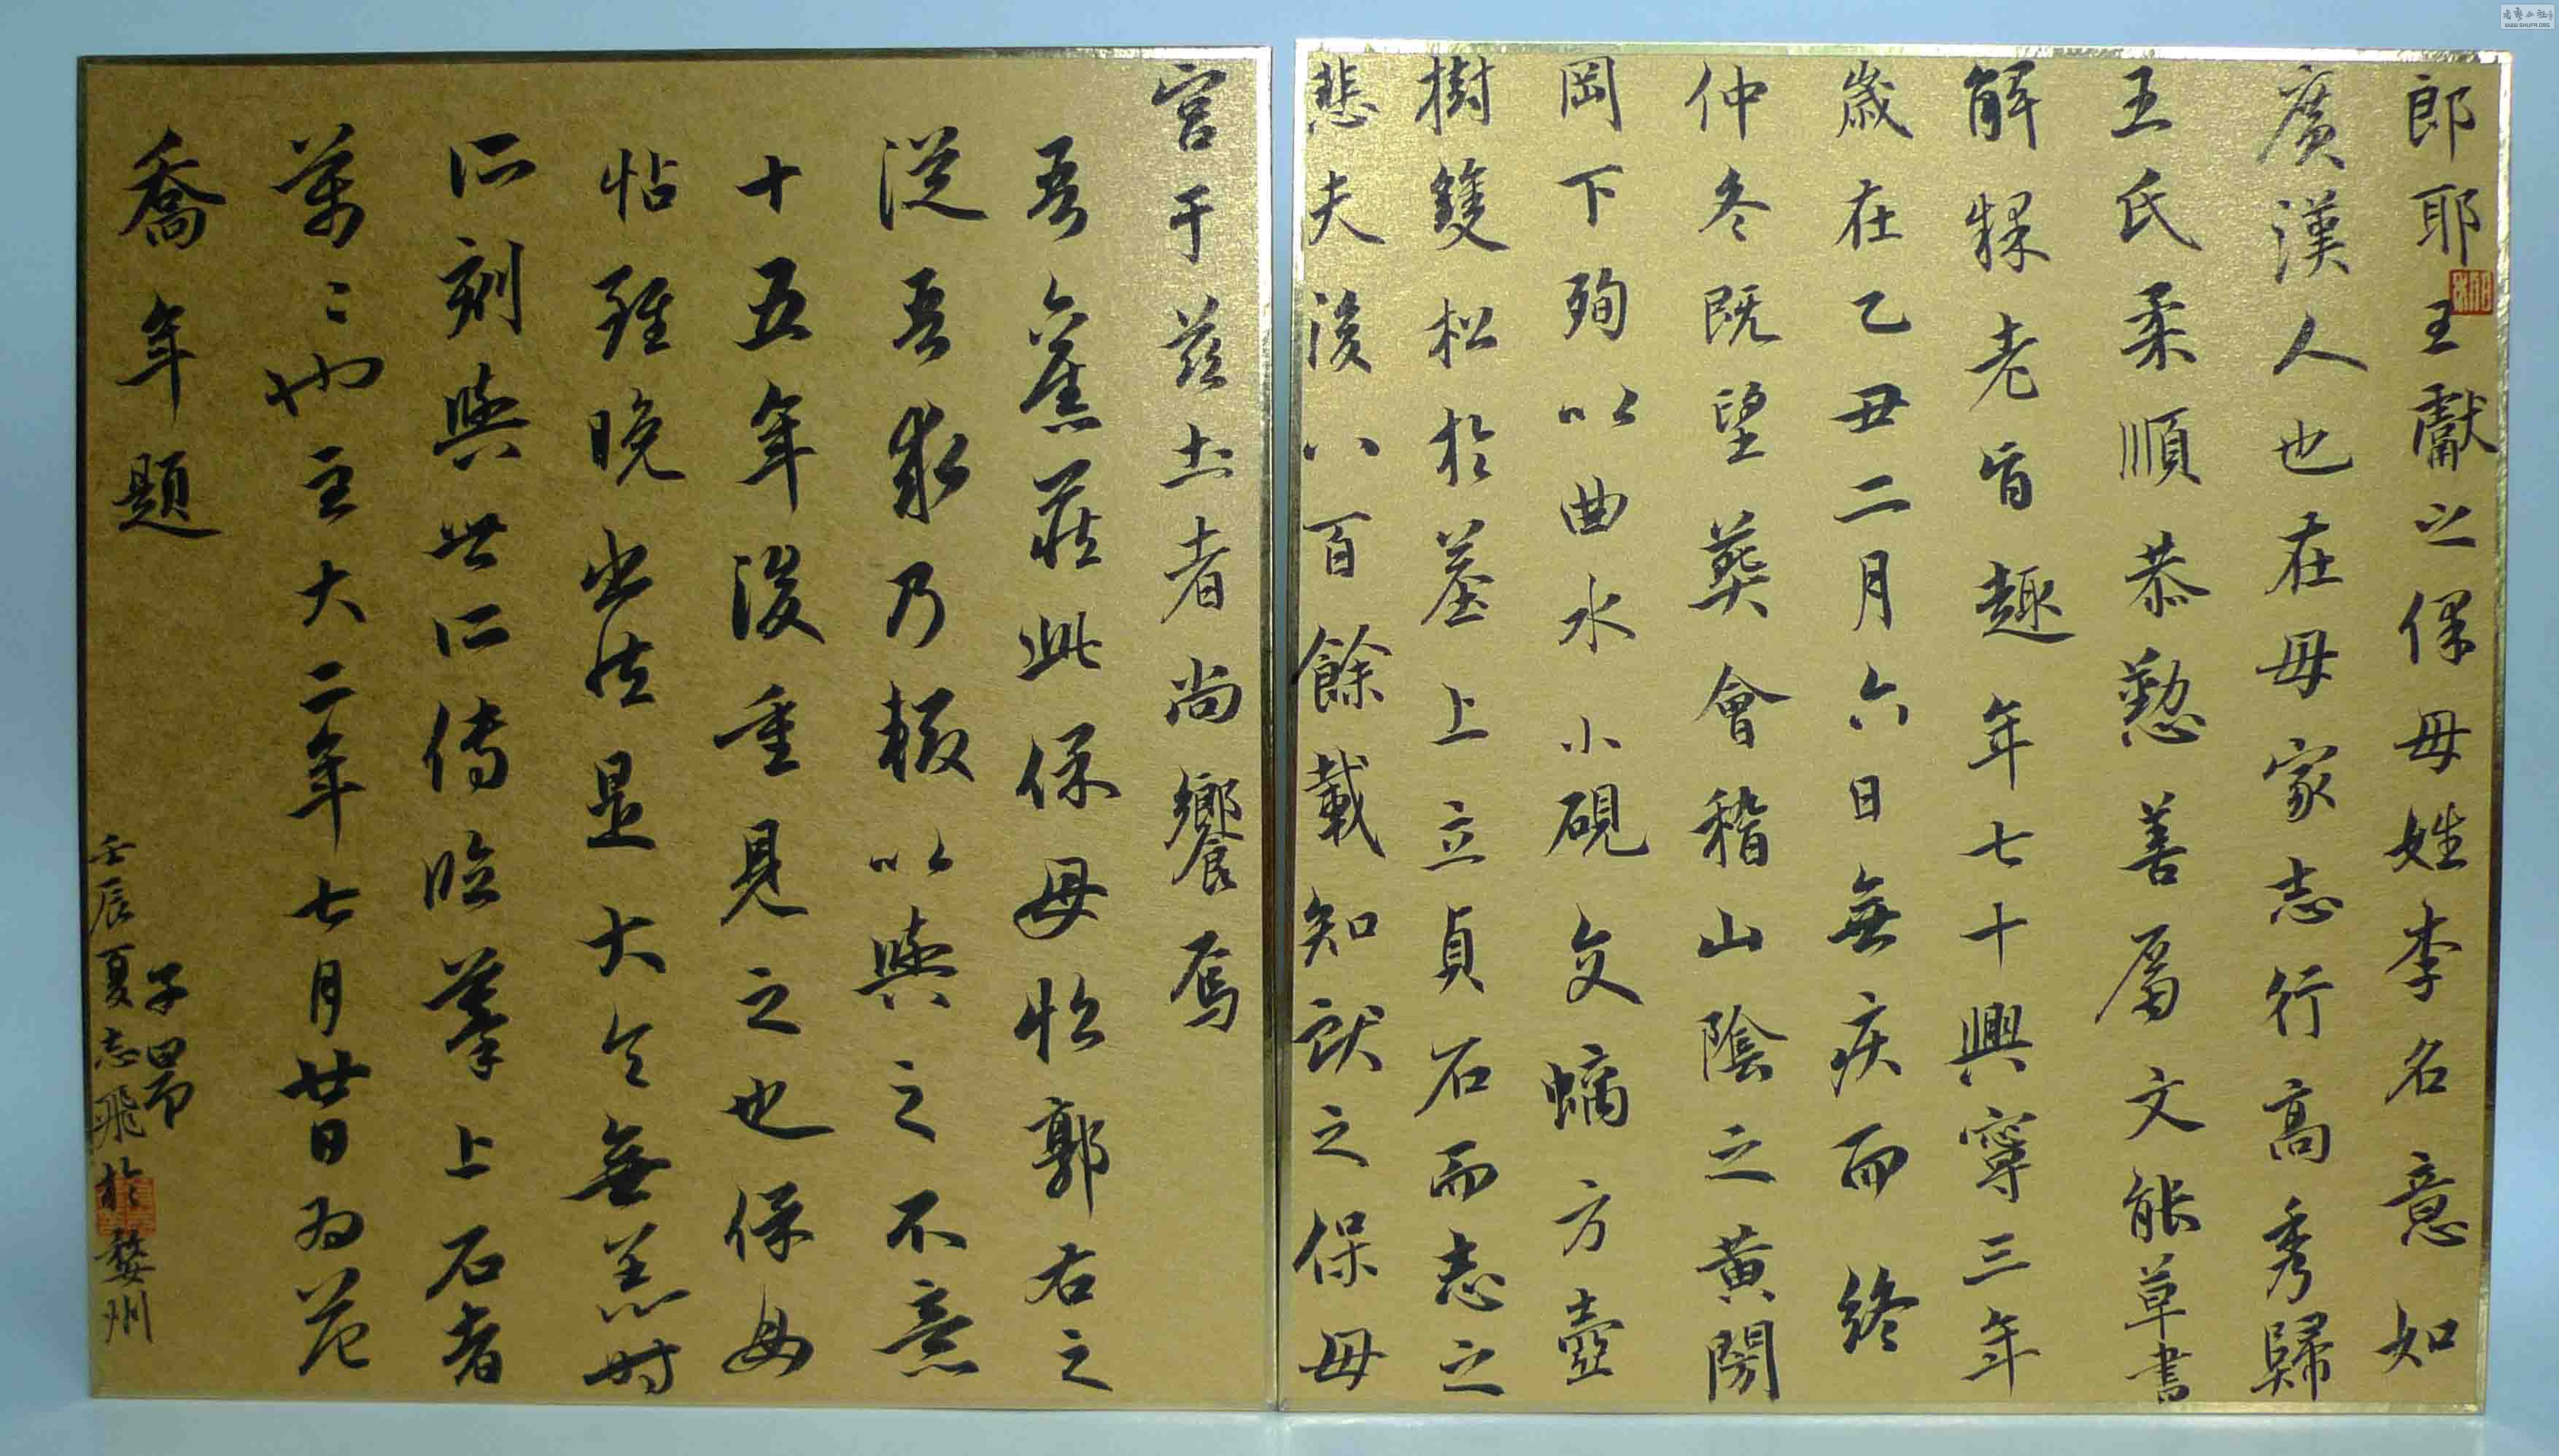 郎耶王獻之保母姓李名意如
廣漢人也在母家志行高秀歸
王氏柔順恭懃善屬文能草書
解釋老旨趣年七十興寧三年
歲在乙丑二月六日無疾而終
仲冬既望葬會稽山陰之黃閍
岡下殉以曲水小硯交螭方壺
樹雙松於墓上立貞石而志之
悲夫後八百餘載知獻之保母
宮于茲土者尚饗焉
吾舊藏此保母帖郭右之
從吾求乃輟以與之不意
十五年後重見之也保母
帖雖晚出然是大令無恙時
所刻與世所傳臨摹上石者
萬〻也至大二年七月廿日為范
喬年題
子昂
壬辰夏志飛於婺州
WWW.SHUFA.ORG